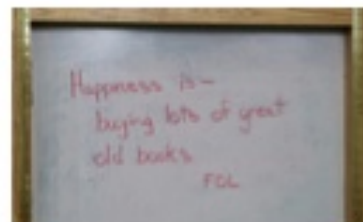 Happiness is~
buying lots of great
old books
FOL